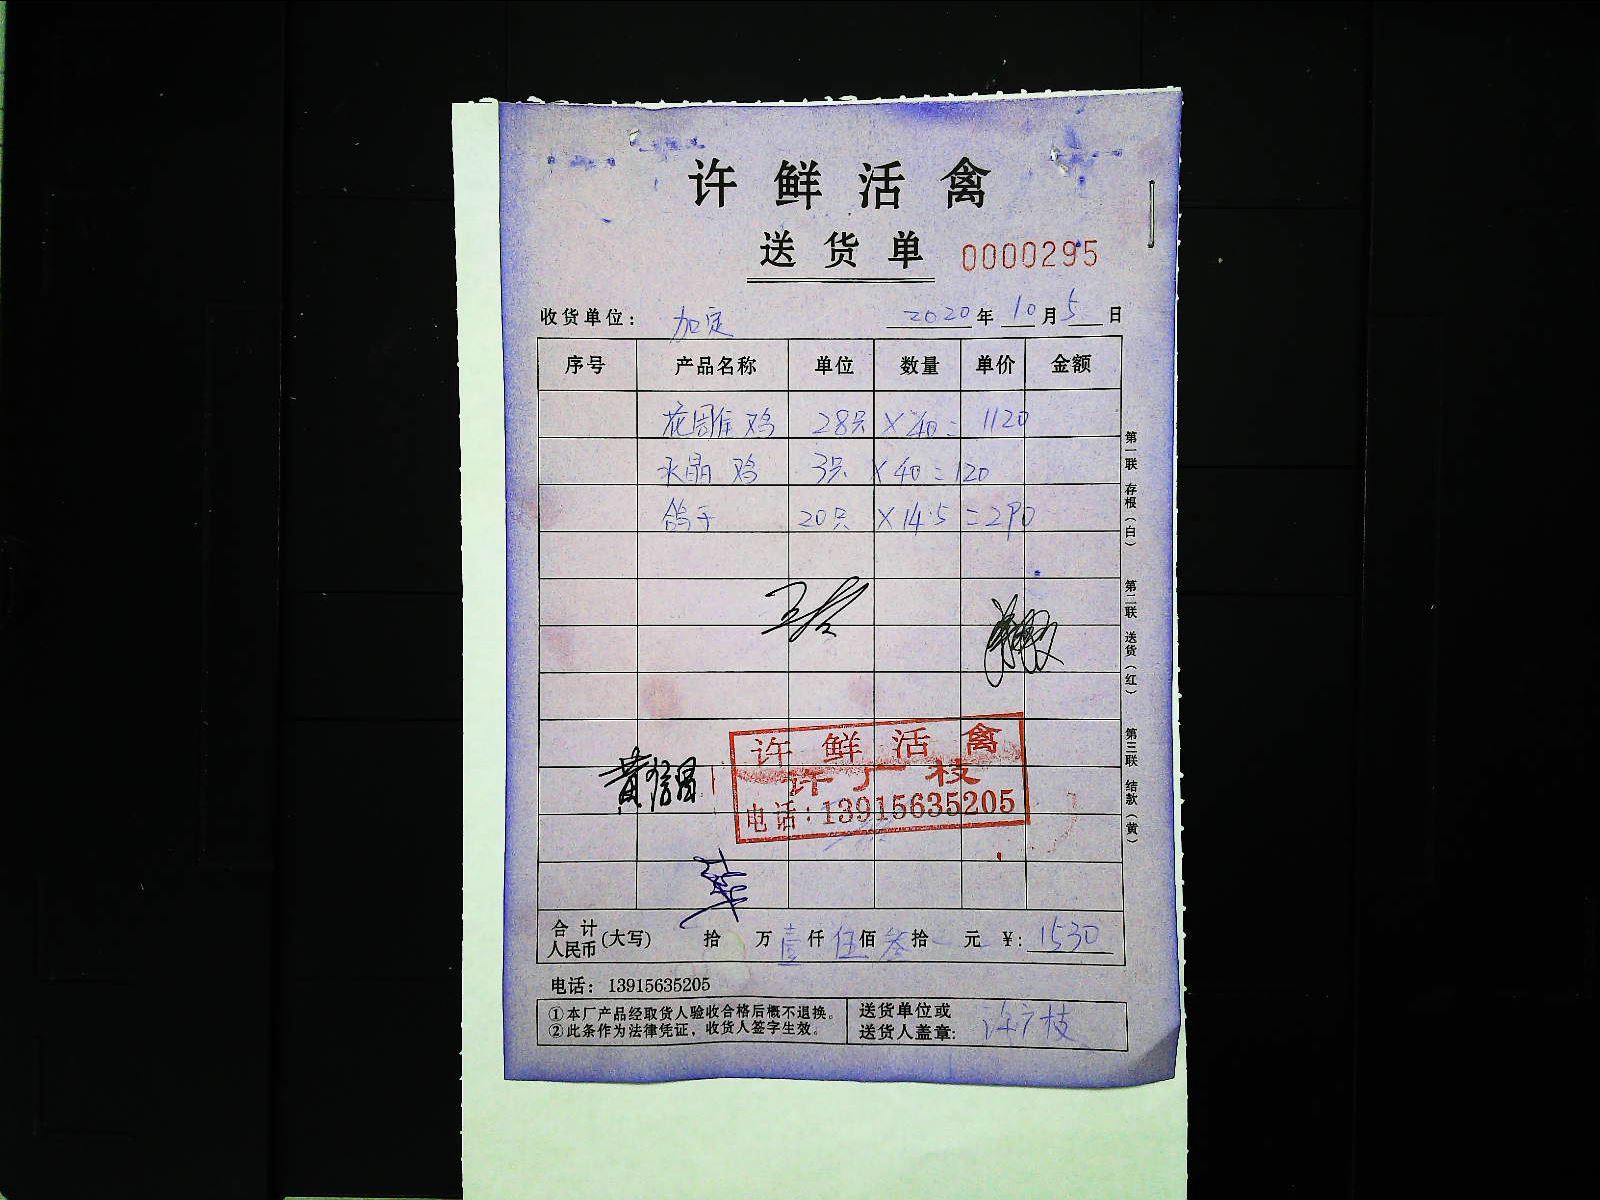 许鲜活禽
送货单 0000295
收货单位: 加定 2020年10月5日
序号 产品名称 单位 数量 单价 金额
花周住鸡 28只 ×40= 1120
水晶鸡 3只 ×40=120
鸽子 20只 ×14.5=290
许鲜活禽
许广枝
电话:13915635205
黄信昌
合计人民币(大写) 拾 万壹仟伍佰叁拾 元 ¥:1530
电话: 13915635205
①本厂产品经取货人验收合格后概不退换。
②此条作为法律凭证,收货人签字生效。
送货单位或
送货人盖章: 许广枝
第一联 存根(白)
第二联 送货(红)
第三联 结款(黄)